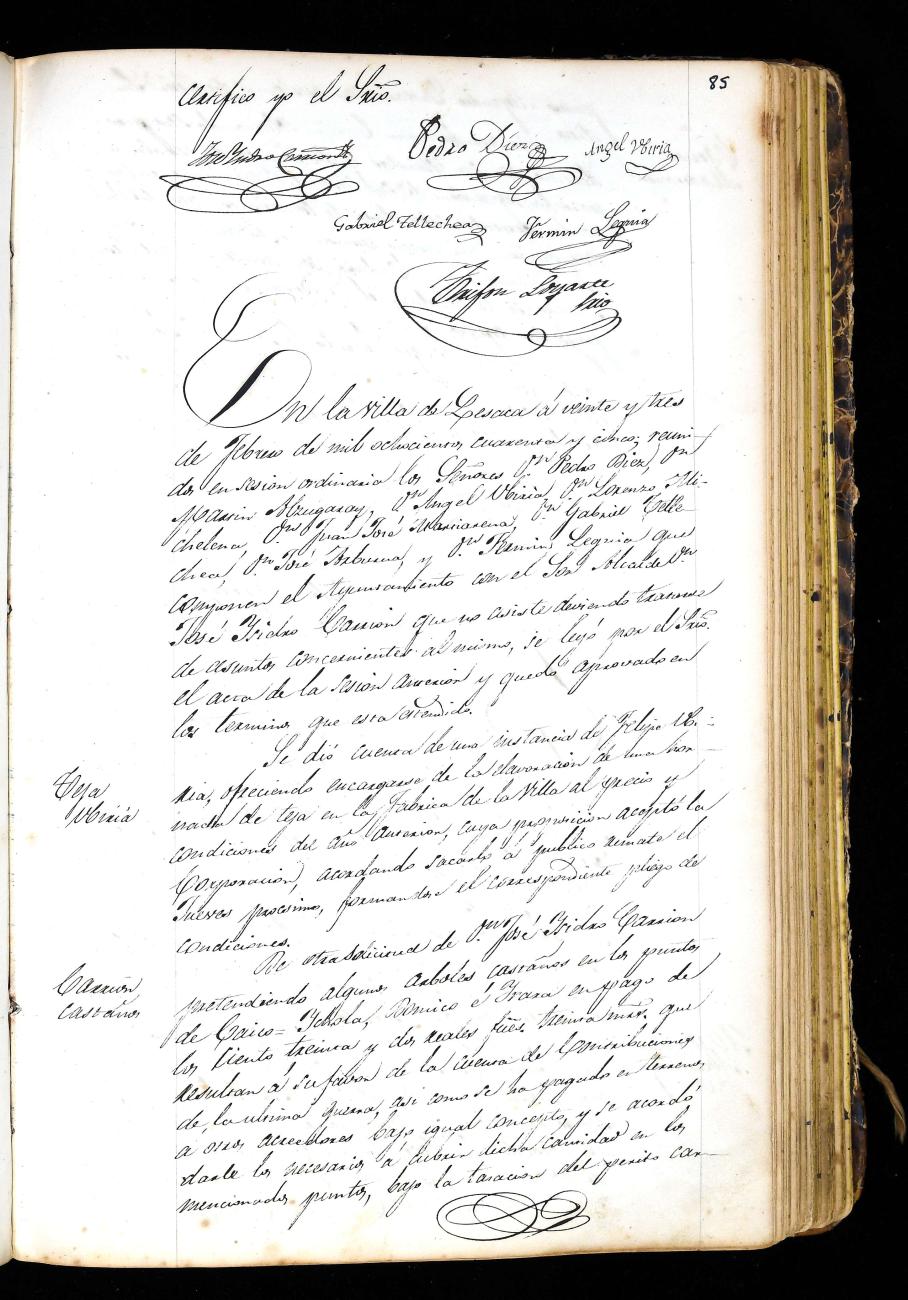 85
certifico yo el Srio.
José Ysidro Carrion
Pedro Diez
Angel Ubiria
Gabriel Tellechea
Fermin Leguia
Trifon
Srio
En la Villa de Lesaca á veinte y tres
de Febrero de mil ochocientos cuarenta y cinco; reuni-
dos en sesion ordinaria los Señores Dn. Pedro Diez, Dn
Martin Alzugaray, Dn Angel Ubiria, Dn. Lorenzo Mi-
chelena, Dn. Juan José Marciarena, Dn. Gabriel Telle-
chea, Dn. José Arburua, y Dn. Fermin Leguia que
componen el Ayuntamiento con el Sor Alcalde Dn
José Ysidro Carrion que no asiste deviendo tratarse
de asuntos concernientes al mismo, se leyó por el Srio.
el acta de la sesion anterior y quedó aprovado en
los terminos que esta estendido.
Se dió cuenta de una instancia de Felipe Ubi-
ria, ofreciendo encargarse de la elavoracion de una hor-
nada de teja en la Fabrica de la Villa al precio y
condiciones del año anterior, cuya proposicion aceptó la
Corporacion, acordando sacarlo á publico remate el
Jueves procsimo, formandose el correspondiente pliego de
condiciones.
Teja
Ubiria
De otra solicitud de Dn José Ysidro Carrion
pretendiendo algunos arboles castaños en los puntos
de Caico= Ychola, Domico é Yrara en pago de
los ciento treinta y dos reales ftes. treinta mrs. que
resultan á su favor de la cuenta de Contribuciones
de la ultima guerra, asi como se ha pagado en terrenos
á otros acreedores bajo igual concepto, y se acordó
darle los necesarios á cubrir dicha cantidad en los
mencionados puntos, bajo la tasacion del perito car-
Carrion
castaños